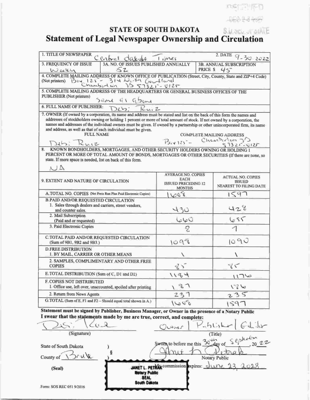 STATE OF SOUTH DAKOTA
Statement of Legal Newspaper Ownership and Circulation
1. TITLE OF NEWSPAPER
Central Dakota Times
2. DATE 9-30-2022
3. FREQUENCY OF ISSUE
Weekly
3A. NO. OF ISSUES PUBLISHED ANNUALLY
52
3B. ANNUAL SUBSCRIPTION
PRICE $ 45
4. COMPLETE MAILING ADDRESS OF KNOWN OFFICE OF PUBLICATION (Street, City, County, State and ZIP+4 Code)
(Not printers) Box 125
Chamberlain SD 57325-0125
5. COMPLETE MAILING ADDRESS OF THE HEADQUARTERS OR GENERAL BUSINESS OFFICES OF THE
PUBLISHER (Not printers)
Same as Above
6. FULL NAME OF PUBLISHER: Desi Ruiz
7. OWNER (If owned by a corporation, its name and address must be stated and list on the back of this form the names and
addresses of stockholders owning or holding 1 percent or more of total amount of stock. If not owned by a corporation, the
names and addresses of the individual owners must be given. If owned by a partnership or other unincorporated firm, its name
and address, as well as that of each individual must be given.
FULL NAME
COMPLETE MAILING ADDRESS
Desi Ruiz
Box 125
Chamberlain SD
57325-0125
8. KNOWN BONDHOLDERS, MORTGAGEES, AND OTHER SECURITY HOLDERS OWNING OR HOLDING 1
PERCENT OR MORE OF TOTAL AMOUNT OF BONDS, MORTGAGES OR OTHER SECURITIES (If there are none, so
state. If more space is needed, list on back of this form.)
NA
9. EXTENT AND NATURE OF CIRCULATION
AVERAGE NO. COPIES
EACH
ISSUED PRECEDING 12
MONTHS
ACTUAL NO. COPIES
ISSUED
NEAREST TO FILING DATE
A. TOTAL NO. COPIES (Net Press Run Plus Paid Electronic Copies)
1597
B. PAID AND/OR REQUESTED CIRCULATION
1. Sales through dealers and carriers, street vendors,
and counter sales.
430
428
2. Mail Subscription
(Paid and or requested)
660
655
3. Paid Electronic Copies
8
7
C. TOTAL PAID AND/OR REQUESTED CIRCULATION
(Sum of 9B1, 9B2 and 9B3.)
1098
1090
D. FREE DISTRIBUTION
1. BY MAIL, CARRIER OR OTHER MEANS
1
1
2. SAMPLES, COMPLIMENTARY AND OTHER FREE
COPIES
85
85
E. TOTAL DISTRIBUTION (Sum of C, D1 and D2)
1184
1176
F. COPIES NOT DISTRIBUTED
1. Office use, left over, unaccounted, spoiled after printing
186
2. Return from News Agents
237
235
G. TOTAL (Sum of E, F1 and F2 - Should equal total shown in A.)
1597
Statement must be signed by Publisher, Business Manager, or Owner in the presence of a Notary Public
I swear that the statements made by me are true, correct, and complete:
Desi Ruiz
Owner / Publisher / Editor
(Signature)
(Title)
State of South Dakota
Sworn to before me this 30th day of September, 2022
County of Brule
Janet L Petrak
Notary Public
(Seal)
My commission expires June 23, 2028
JANET L. PETRAK
Notary Public
SEAL
South Dakota